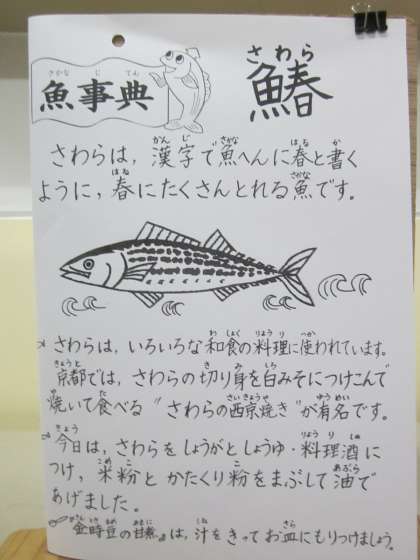 魚事典
鰆
さわらは，漢字で魚へんに春と書く
ように，春にたくさんとれる魚です。
さわらは，いろいろな和食の料理に使われています。
京都では，さわらの切り身を白みそにつけこんで
焼いて食べる〝さわらの西京焼き〟が有名です。
今日は，さわらをしょうがとしょうゆ・料理酒に
つけ，米粉とかたくり粉をまぶして油で
あげました。
金時豆の甘煮は，汁をきってお皿にもりつけましょう。